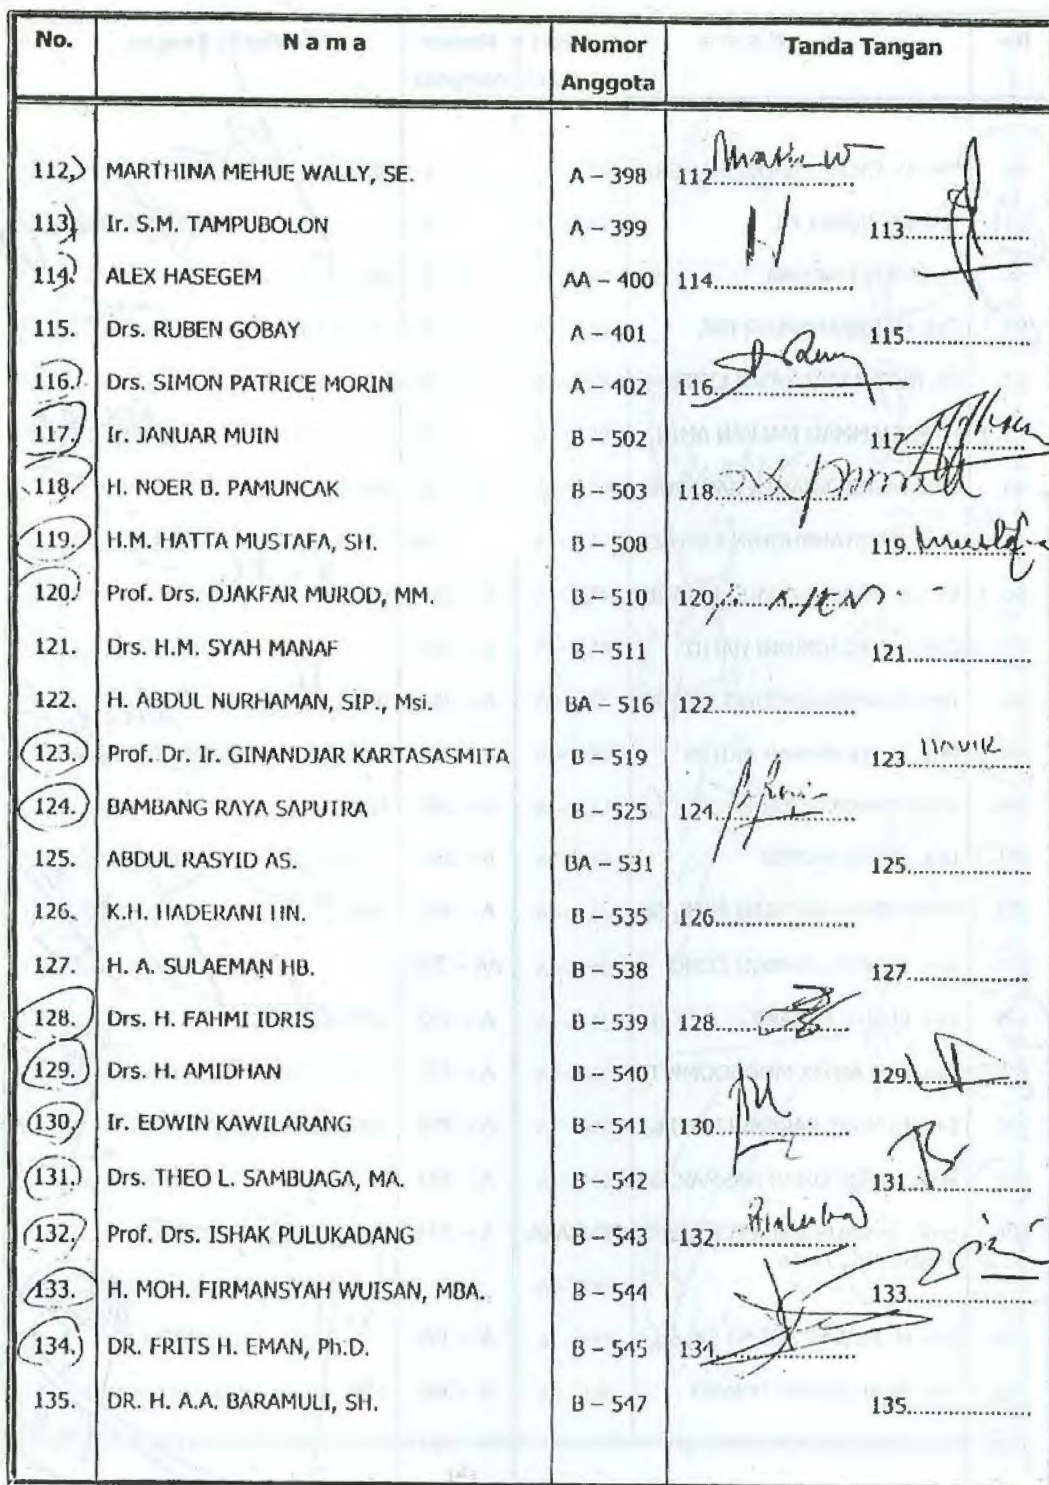 No. Nama Nomor Anggota Tanda Tangan
112. MARTHINA MEHUE WALLY, SE. A – 398 112
113. Ir. S.M. TAMPUBOLON A – 399 113
114. ALEX HASEGEM AA – 400 114
115. Drs. RUBEN GOBAY A – 401 115
116. Drs. SIMON PATRICE MORIN A – 402 116
117. Ir. JANUAR MUIN B – 502 117
118. H. NOER B. PAMUNCAK B – 503 118
119. H.M. HATTA MUSTAFA, SH. B – 508 119
120. Prof. Drs. DJAKFAR MUROD, MM. B – 510 120
121. Drs. H.M. SYAH MANAF B – 511 121
122. H. ABDUL NURHAMAN, SIP., Msi. BA – 516 122
123. Prof. Dr. Ir. GINANDJAR KARTASASMITA B – 519 123
124. BAMBANG RAYA SAPUTRA B – 525 124
125. ABDUL RASYID AS. BA – 531 125
126. K.H. HADERANI HN. B – 535 126
127. H. A. SULAEMAN HB. B – 538 127
128. Drs. H. FAHMI IDRIS B – 539 128
129. Drs. H. AMIDHAN B – 540 129
130. Ir. EDWIN KAWILARANG B – 541 130
131. Drs. THEO L. SAMBUAGA, MA. B – 542 131
132. Prof. Drs. ISHAK PULUKADANG B – 543 132
133. H. MOH. FIRMANSYAH WUISAN, MBA. B – 544 133
134. DR. FRITS H. EMAN, Ph.D. B – 545 134
135. DR. H. A.A. BARAMULI, SH. B – 547 135